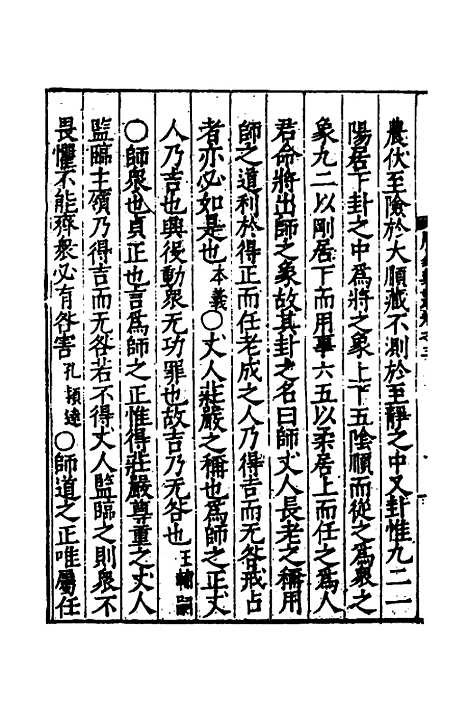 農伏至險於大順藏不測於至靜之中又卦惟九二一
陽居下卦之中爲將之象上下五陰順而從之爲衆之
象九二以剛居下而用事六五以柔居上而任之爲人
君命將出師之象故其卦之名曰師丈人長老之稱用
師之道利於得正而任老成之人乃得吉而无咎戒占
者亦必如是也本義○丈人莊嚴之稱也爲師之正丈
人乃吉也興役動衆无功罪也故吉乃无咎也王輔嗣
○師衆也貞正也言爲師之正惟得莊嚴尊重之丈人
監臨主領乃得吉而无咎若不得丈人監臨之則衆不
畏懼不能齊衆必有咎害孔頴達○師道之正唯屬任